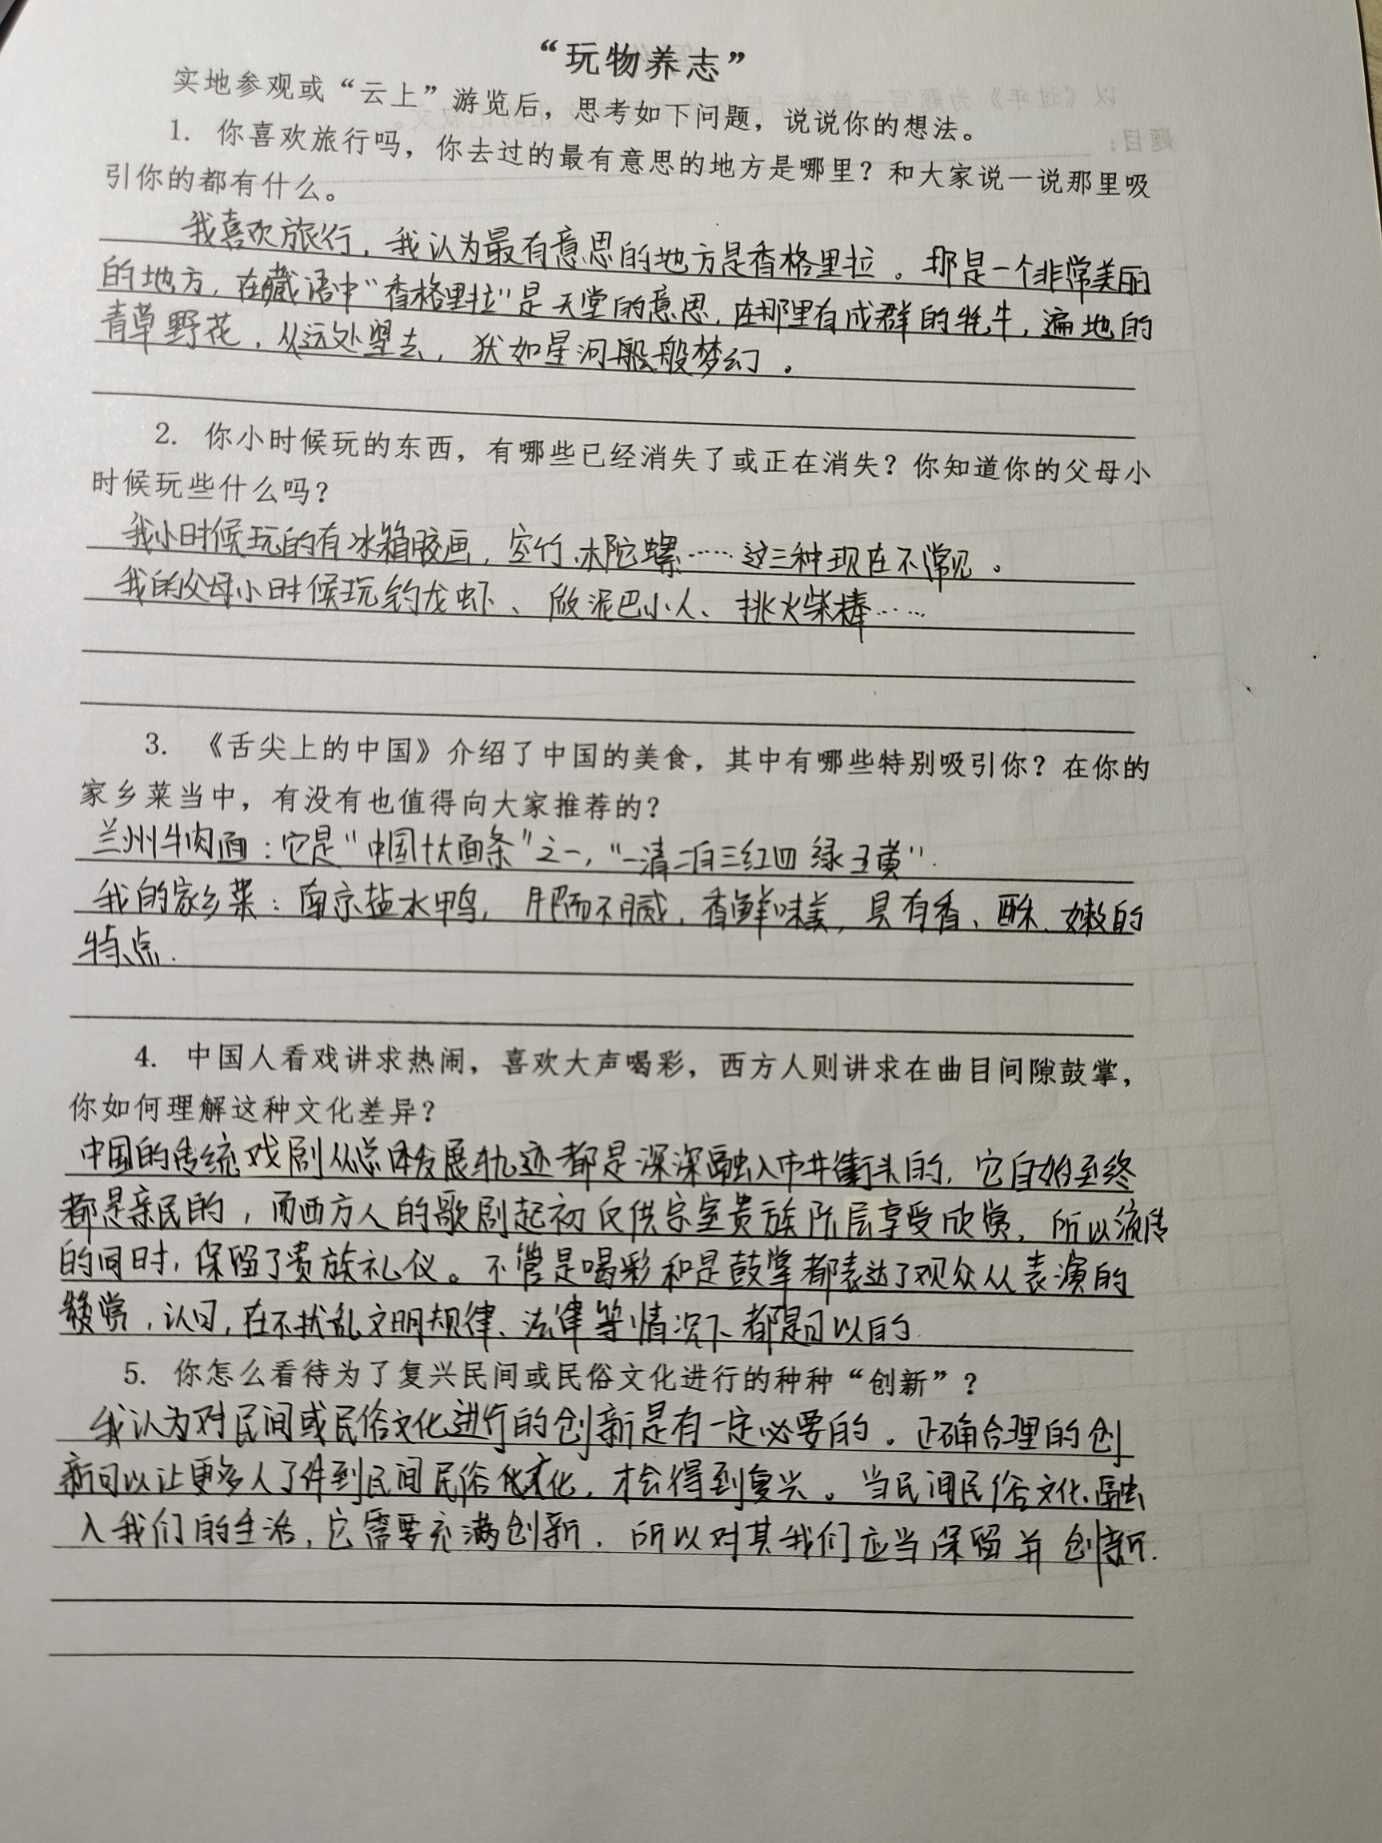 “玩物养志”
实地参观或“云上”游览后，思考如下问题，说说你的想法。
1. 你喜欢旅行吗，你去过的最有意思的地方是哪里？和大家说一说那里吸
引你的都有什么。
我喜欢旅行，我认为最有意思的地方是香格里拉。那是一个非常美丽
的地方，在藏语中“香格里拉”是天堂的意思，在那里有成群的牦牛，遍地的
青草野花，从远处望去，犹如星河般般梦幻。
2. 你小时候玩的东西，有哪些已经消失了或正在消失？你知道你的父母小
时候玩些什么吗？
我小时候玩的有冰箱胶画，空竹、木陀螺……这三种现在不常见。
我的父母小时候玩钓龙虾、做泥巴小人、挑火柴棒……
3. 《舌尖上的中国》介绍了中国的美食，其中有哪些特别吸引你？在你的
家乡菜当中，有没有也值得向大家推荐的？
兰州牛肉面：它是“中国十大面条”之一，“一清二白三红四绿五黄”.
我的家乡菜：南京盐水鸭，肥而不腻，香鲜味美，具有香、酥、嫩的
特点.
4. 中国人看戏讲求热闹，喜欢大声喝彩，西方人则讲求在曲目间隙鼓掌，
你如何理解这种文化差异？
中国的传统戏剧从总体发展轨迹都是深深融入市井街头的，它自始至终
都是亲民的，而西方人的歌剧起初仅供宗室贵族阶层享受欣赏，所以流传
的同时，保留了贵族礼仪。不管是喝彩和是鼓掌都表达了观众从表演的
赞赏，认可，在不扰乱文明规律、法律等情况下都是可以的.
5. 你怎么看待为了复兴民间或民俗文化进行的种种“创新”？
我认为对民间或民俗文化进行的创新是有一定必要的。正确合理的创
新可以让更多人了解到民间民俗文化，才会得到复兴。当民间民俗文化融
入我们的生活，它需要充满创新.所以对其我们应当保留并创新.